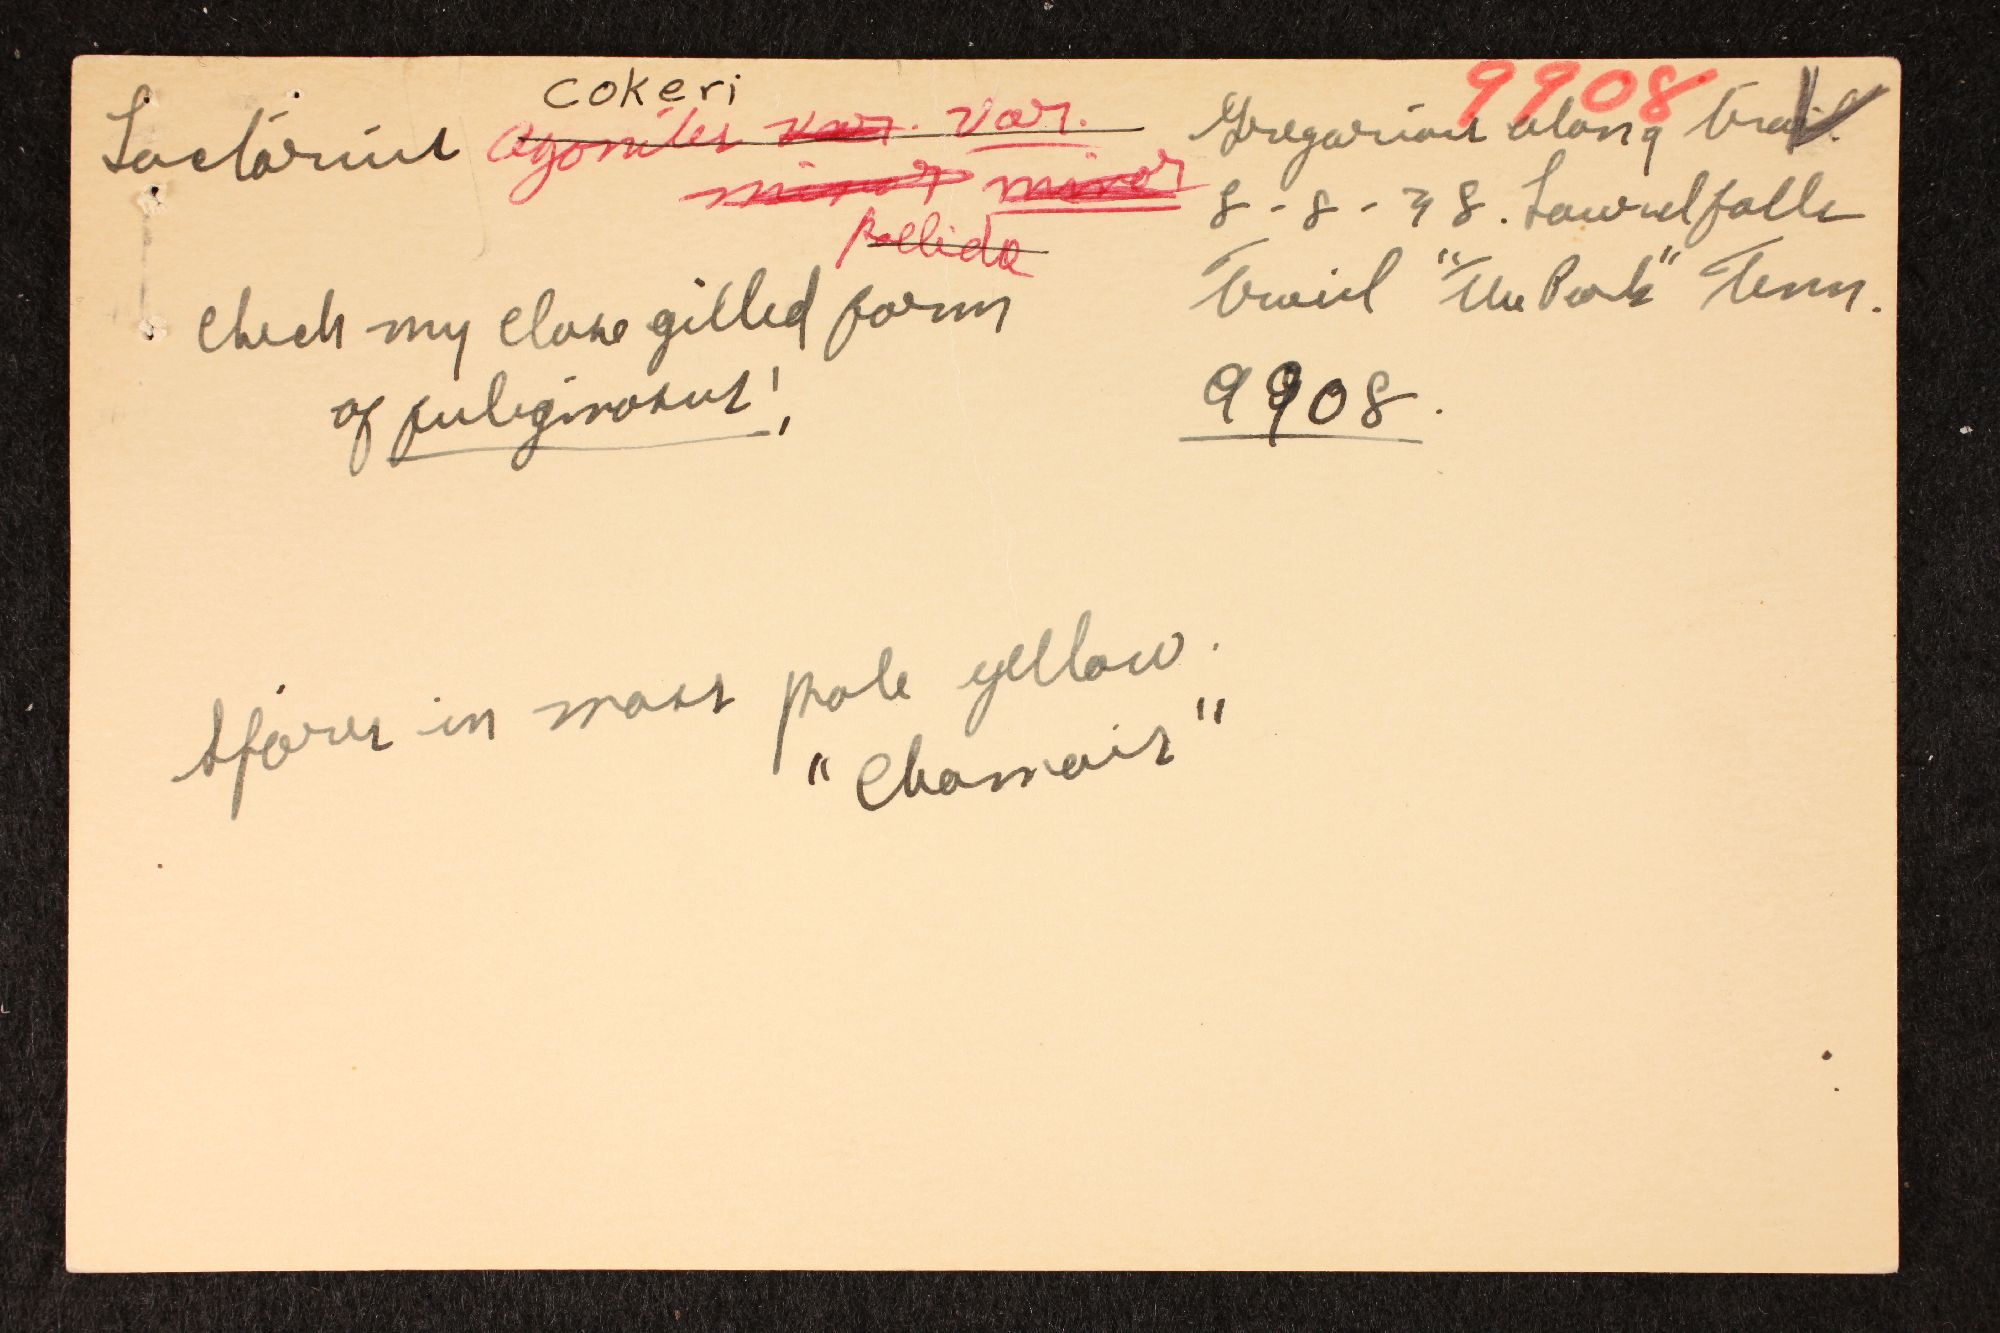 cokeri
9908
Lactarius agonites var. var.
minor minor
pallida
Gregarious along trail.
8-8-38. Laurel falls
Trail "The Park" Tenn.
9908.
Check my close gilled form
of fuliginosus!
Spores in mass pale yellow.
"Chamois"